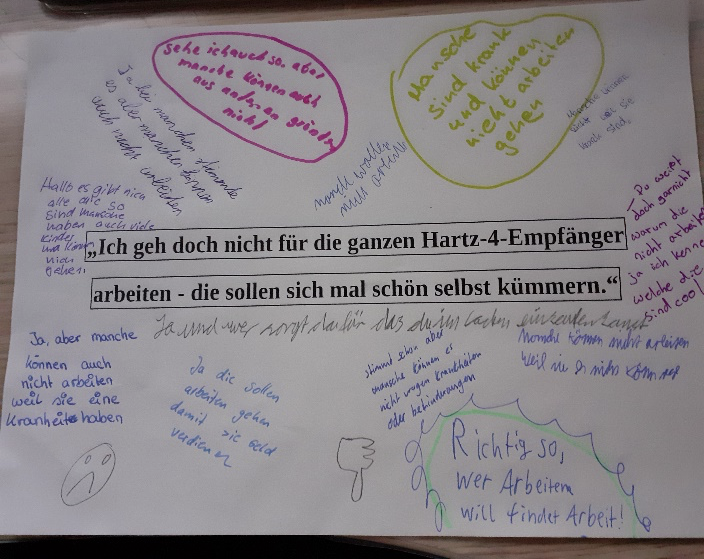 Sehe ich auch so. aber
manche können auch
aus anderen gründen
nicht
Mansche
sind krank
und können
nicht arbeiten
gehen
Ja bei manchen stimmts
es aber manche können
auch nicht arbeiten
manche wollen
nicht arbeiten
sind,
Du weist
doch garnicht
warum die
nicht arbeiten
ja ich kenne
welche die
sind cool
Halb es gibt nich
alle die so
Sind mansche
haben auch viele
Kinder
und können
nich
gehen
„Ich geh doch nicht für die ganzen Hartz-4-Empfänger
arbeiten - die sollen sich mal schön selbst kümmern.“
Ja und wer sorgt dafür das du im Laden einkaufen kannst
Ja, aber manche
können auch
nicht arbeiten
weil sie eine
Kranheit haben
Ja die sollen
arbeiten gehen
damit sie Geld
verdienen
stimmt schon aber
mansche können es
nicht wegen krankheiten
oder behinderungen
Manche können nicht arbeiten
weil
Richtig so,
wer Arbeitem
will findet Arbeit!